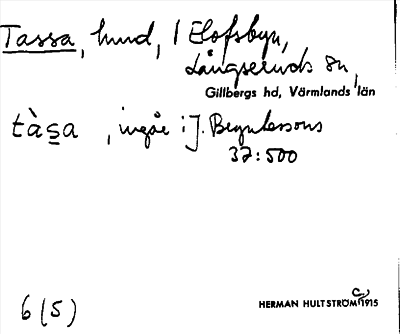 Tassa, hund, i Elofsbyn,
Långseruds sn,
Gillbergs hd, Värmlands län
tàs̲a , ingår i J. Bryntessons
37:500
6 (5)
HERMAN HULTSTRÖM 1915